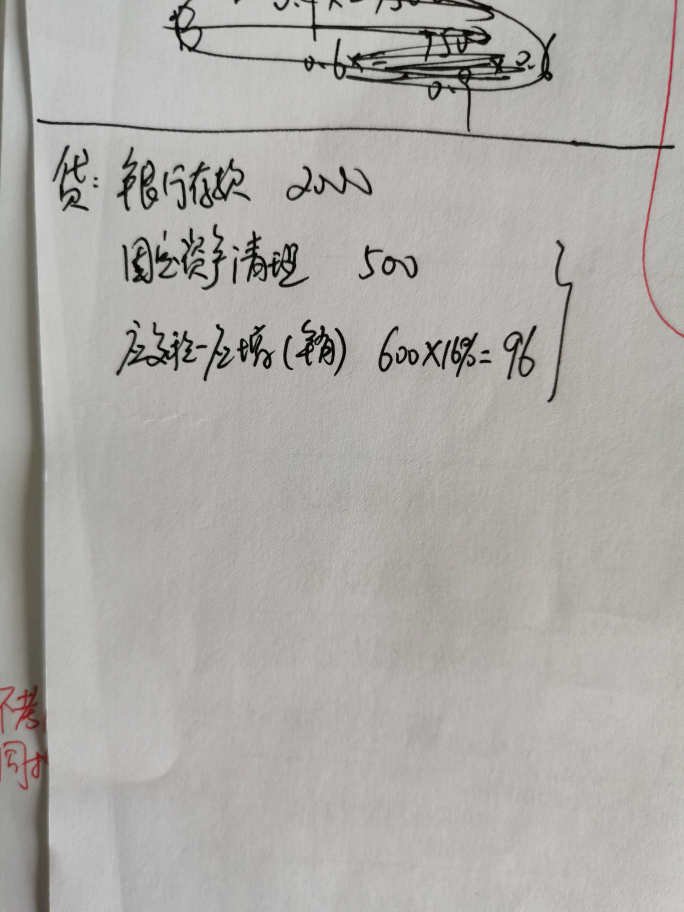 750
0.6
0.
贷：银行存款 2000
固定资产清理 500
应交税-应增(销) 600×16%=96
不考